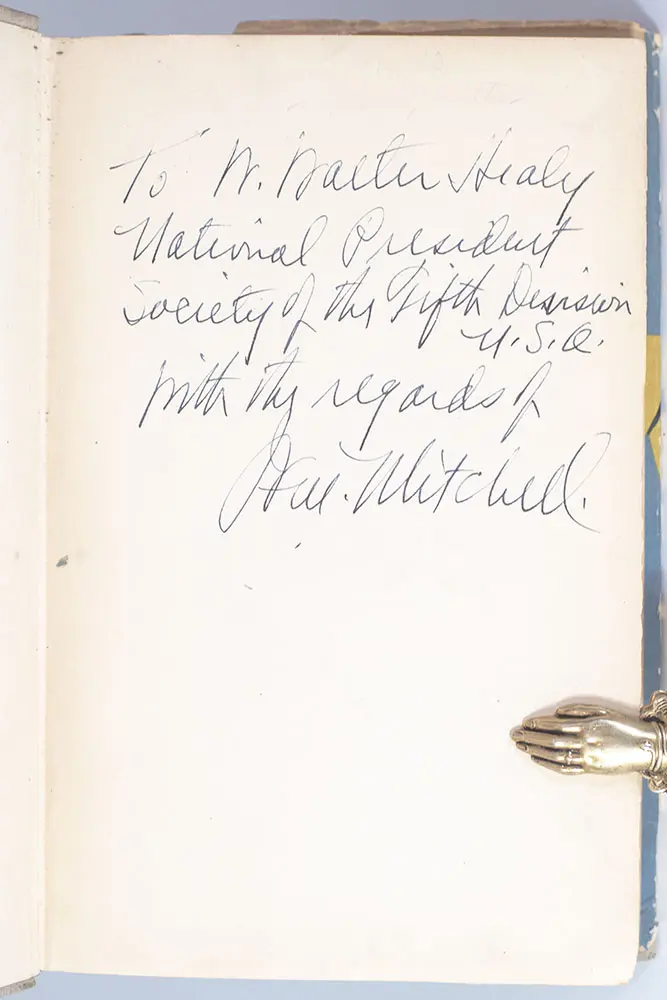 To W. Walter Healy
National President
Society of the Fifth Division
U.S.A.
with the regards of
Wm. Mitchell.